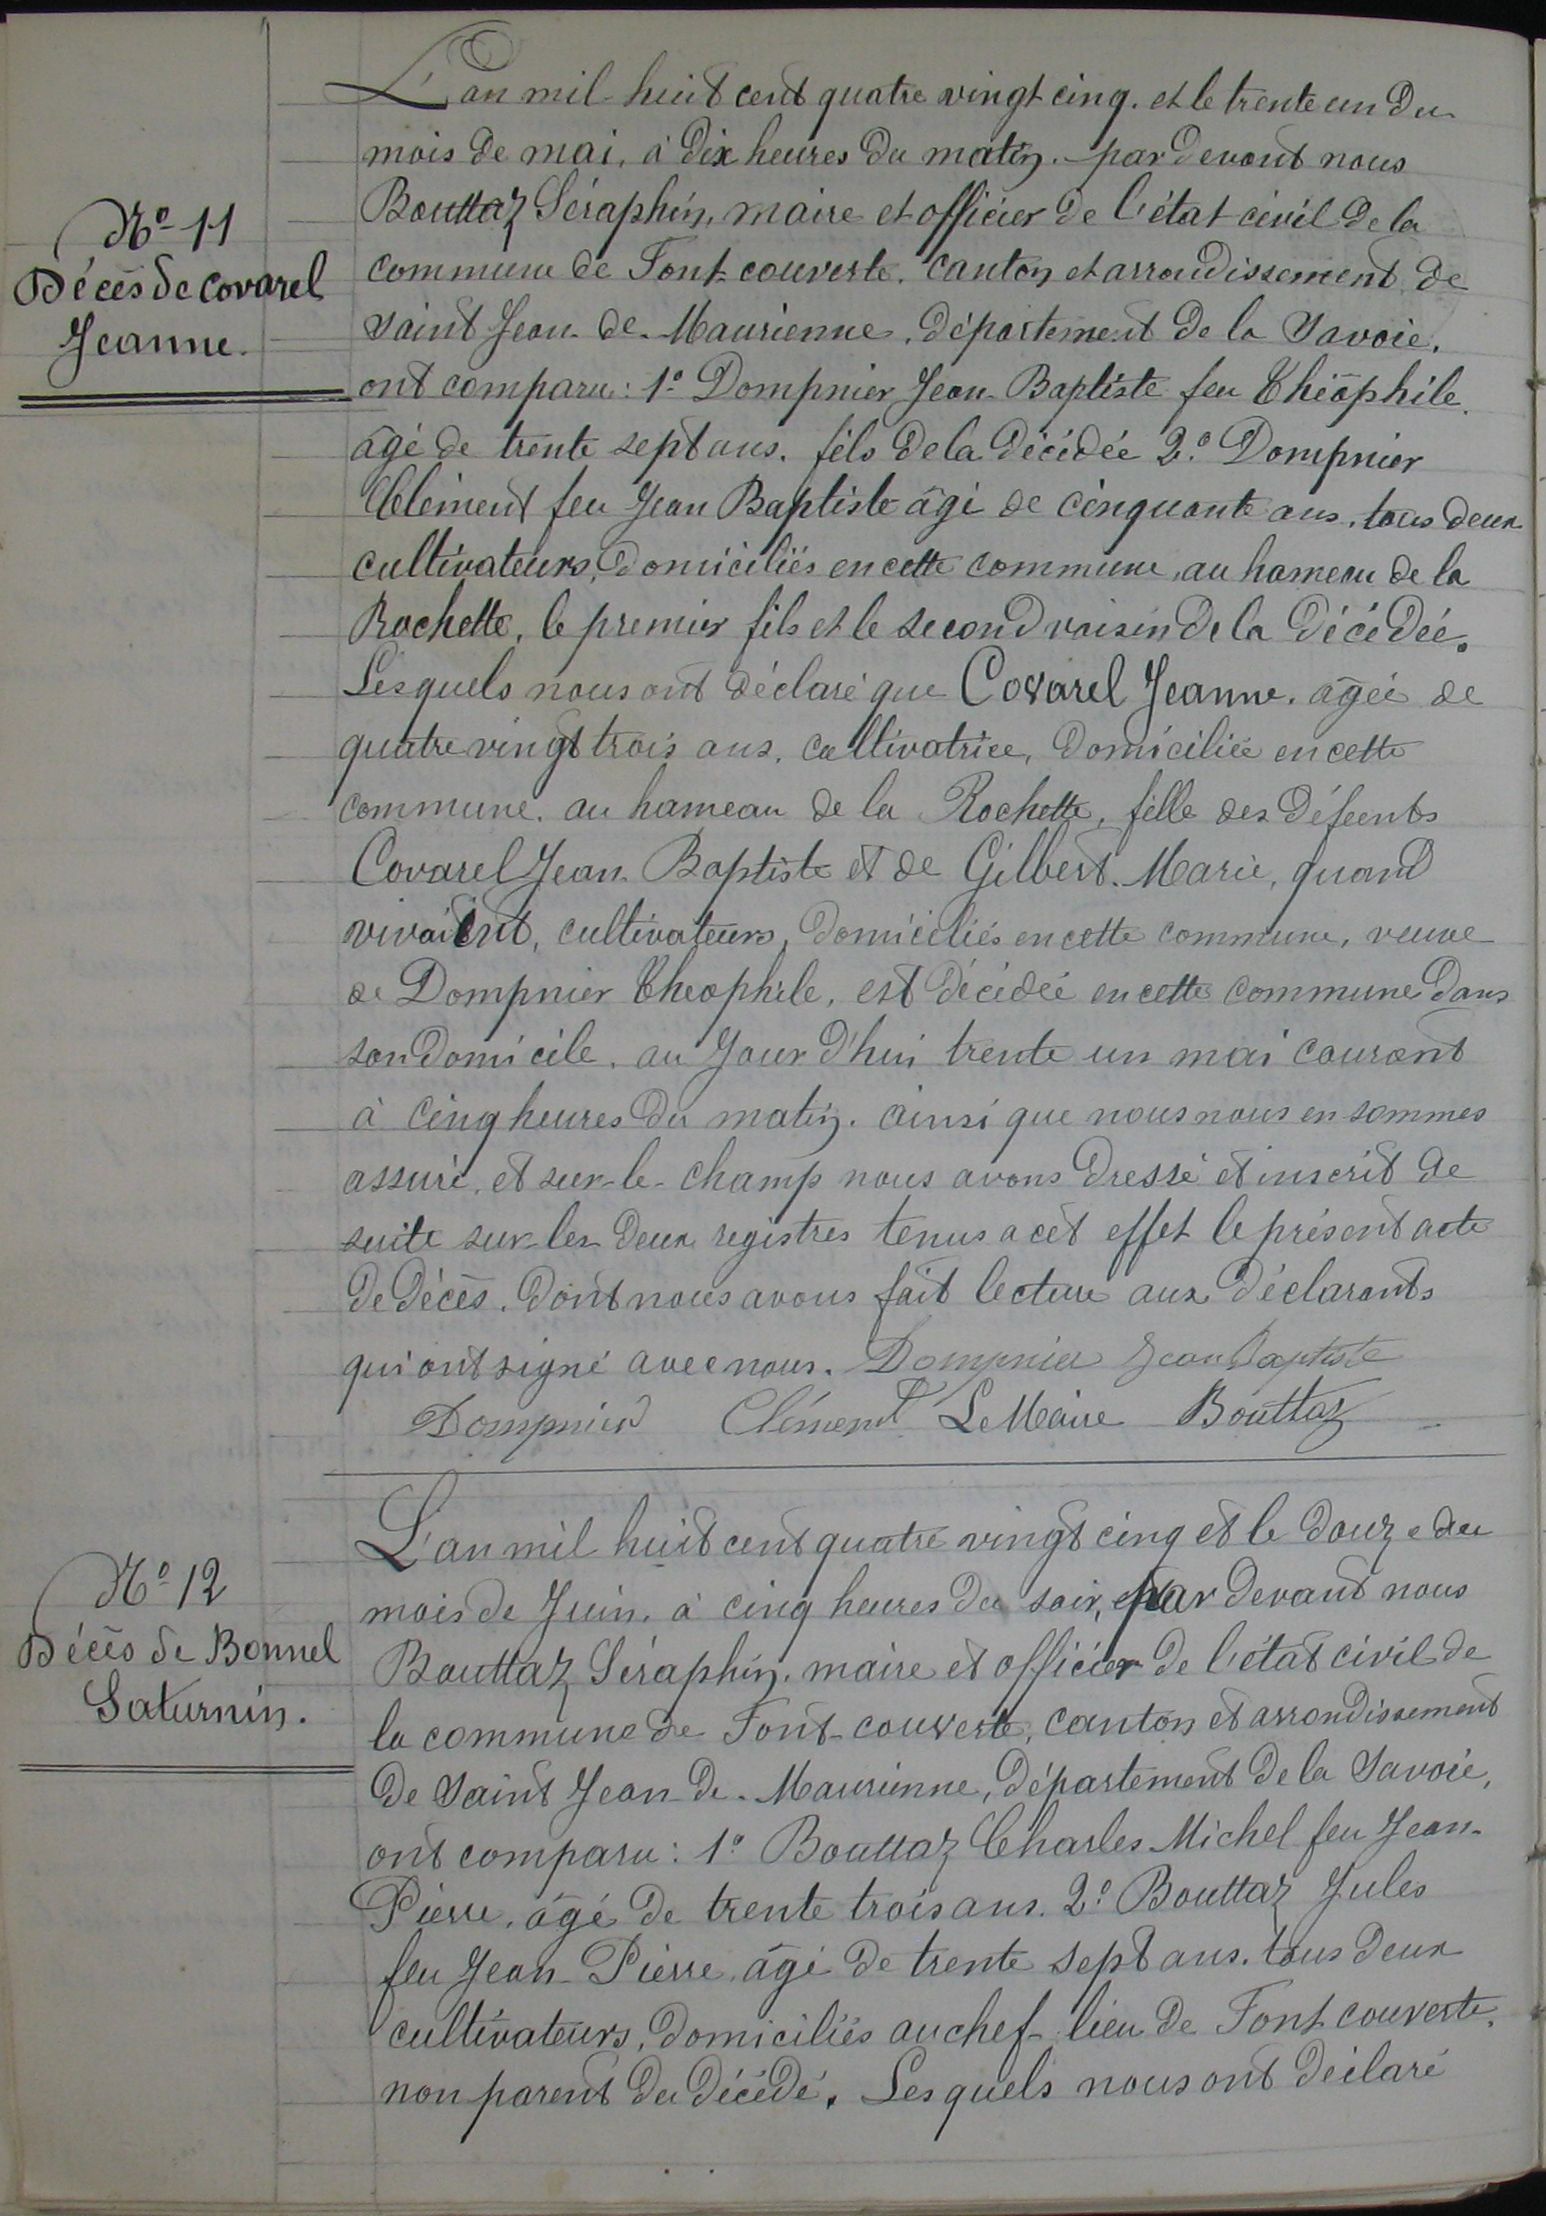 L'an mil huit cent quatre vingt cinq. et le trente un du
mois de mai, à dix heures du matin. par devant nous
Bouttaz Séraphin, maire et officier de l'état civil de la
commune de Font-couverte. canton et arrondissement de
Saint Jean-de-Maurienne, département de la Savoie.
ont comparu: 1º Dompnier Jean-Baptiste feu Théophile.
âgé de trente sept ans. fils de la décédée 2º. Dompnier
Clément feu Jean Baptiste âgé de cinquante ans, tous deux
cultivateurs, domiciliés en cette commune, au hameau de la
Rochette, le premier fils et le second voisin de la décédée.
Lesquels nous ont déclaré que Covarel Jeanne. âgée de
quatre vingt trois ans, cultivatrice, domiciliée en cette
commune. au hameau de la Rochette, fille des défunts
Covarel Jean-Baptiste et de Gilbert-Marie, quand
vivaient, cultivateurs, domiciliés en cette commune, veuve
de Dompnier Théophile, est décédée en cette commune dans
son domicile. au Jour d'hui trente un mai courant
à cinq heures du matin. ainsi que nous nous en sommes
assuré, et sur-le-champ nous avons dressé et inscrit de
suite sur les deux registres tenus a cet effet le présent acte
de décès. dont nous avons fait lecture aux déclarants
qui ont signé avec nous. Dompnier Jean Baptiste
Dompnier Clément Le Maire Bouttaz
Nº 11
Décès de Covarel
Jeanne.
L'an mil huit cent quatre vingt cinq et le douze du
mois de Juin. à cinq heures du soir, par devant nous
Bouttaz Séraphin. maire et officier de l'état civil de
la commune de Font-couverte, canton et arrondissement
de Saint Jean-de-Maurienne, département de la Savoie,
ont comparu: 1º Bouttaz Charles-Michel feu Jean-
Pierre. âgé de trente trois ans. 2º Bouttaz Jules
feu Jean-Pierre, âgé de trente sept ans. tous deux
cultivateurs, domiciliés au chef-lieu de Font couverte.
non parent du décédé. Lesquels nous ont déclaré
Nº 12
Décès de Bonnel
Saturnin.